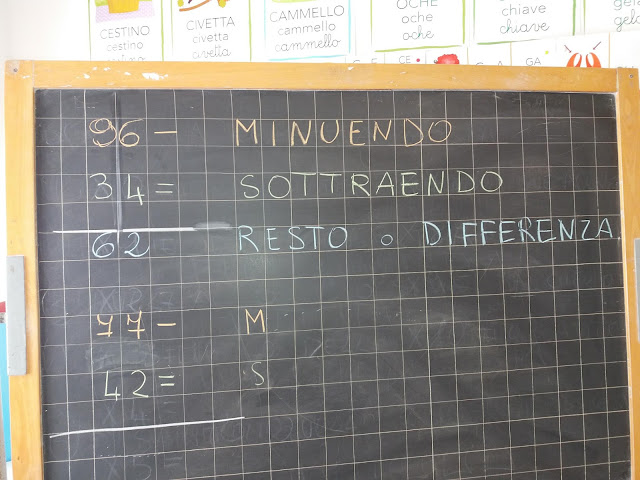 CESTINO
cestino
cestino
CIVETTA
civetta
civetta
CAMMELLO
cammello
cammello
OCHE
oche
oche
chiave
chiave
CE
GA
96 - MINUENDO
34 = SOTTRAENDO
62 RESTO o DIFFERENZA
77 - M
42 = S